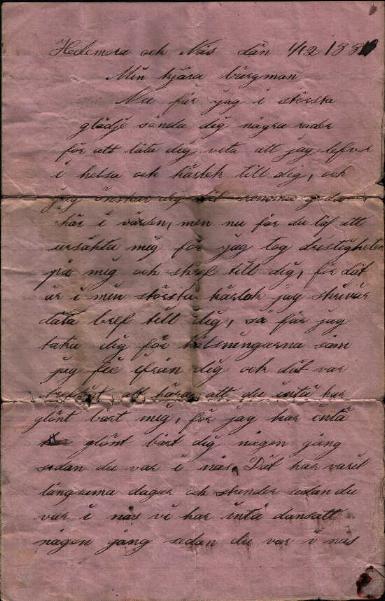 Hedemora och Näs den 1/12 188
Min kjära bärgman
Nu får jag i största
glädje sända dig några rader
för att låta dig veta att jag lefver
i helsa och kärlek till dig, och
jag önskar dig det
här i värden, men nu får du låf att
ursäkta mig för jag tog drestigheten
på mig och skref till dig, för dät
är i min största kärlek jag skrivär
däta bref till dig, så får jag
taka dig för hälsningarna som
jag feck ifrån dig och dät var
att höra att du intä har
glömt bort mig, för jag har intä
glömt bort dig någen gång
sedan du var i näs Dät har varit
långsama dagar och stunder sedan du
var i näs vi har intä dansatt
någen gång sedan du var i näs